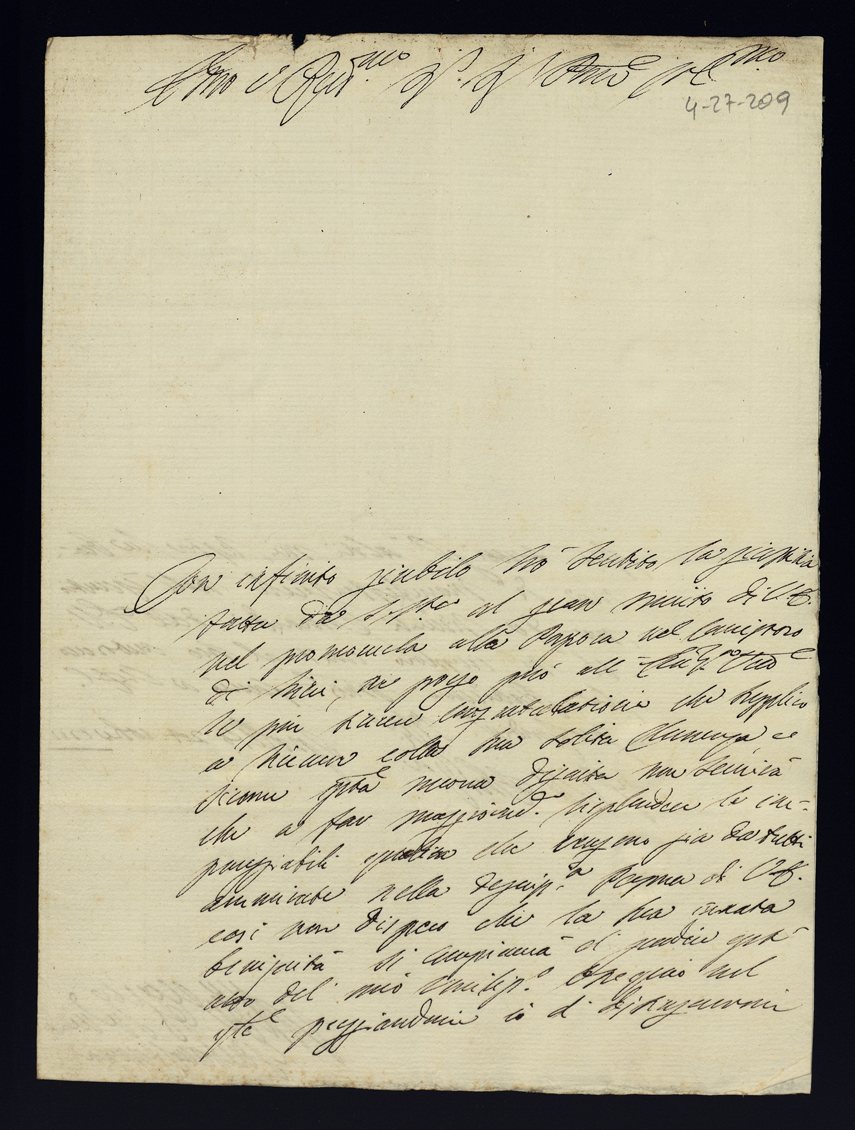 Emo e Rev.mo Sig.r Sig.r Pne Col.mo
4-27-209
Con infinito giubilo hò sentito la giustitia
fatta da S. S.tà al gran merito di V.E.
nel promoverla alla Porpora nel Concistoro
di hieri, ne porgo però all' E.V.
le più sincere congratulatione che supplico
a ricever colla sua solita Clemenza, e
sicome questa nuova dignità non servirà
che a far maggiorm.te risplendere le im-
pareggiabili qualità che vengono già da tutti
ammirate nella degniss.a Persona di V.E.
così non dispero che la sua innata
benignità si compiacerà di gradire quest'
atto del mio humiliss.o Ossequio nel
pregiandomi io di